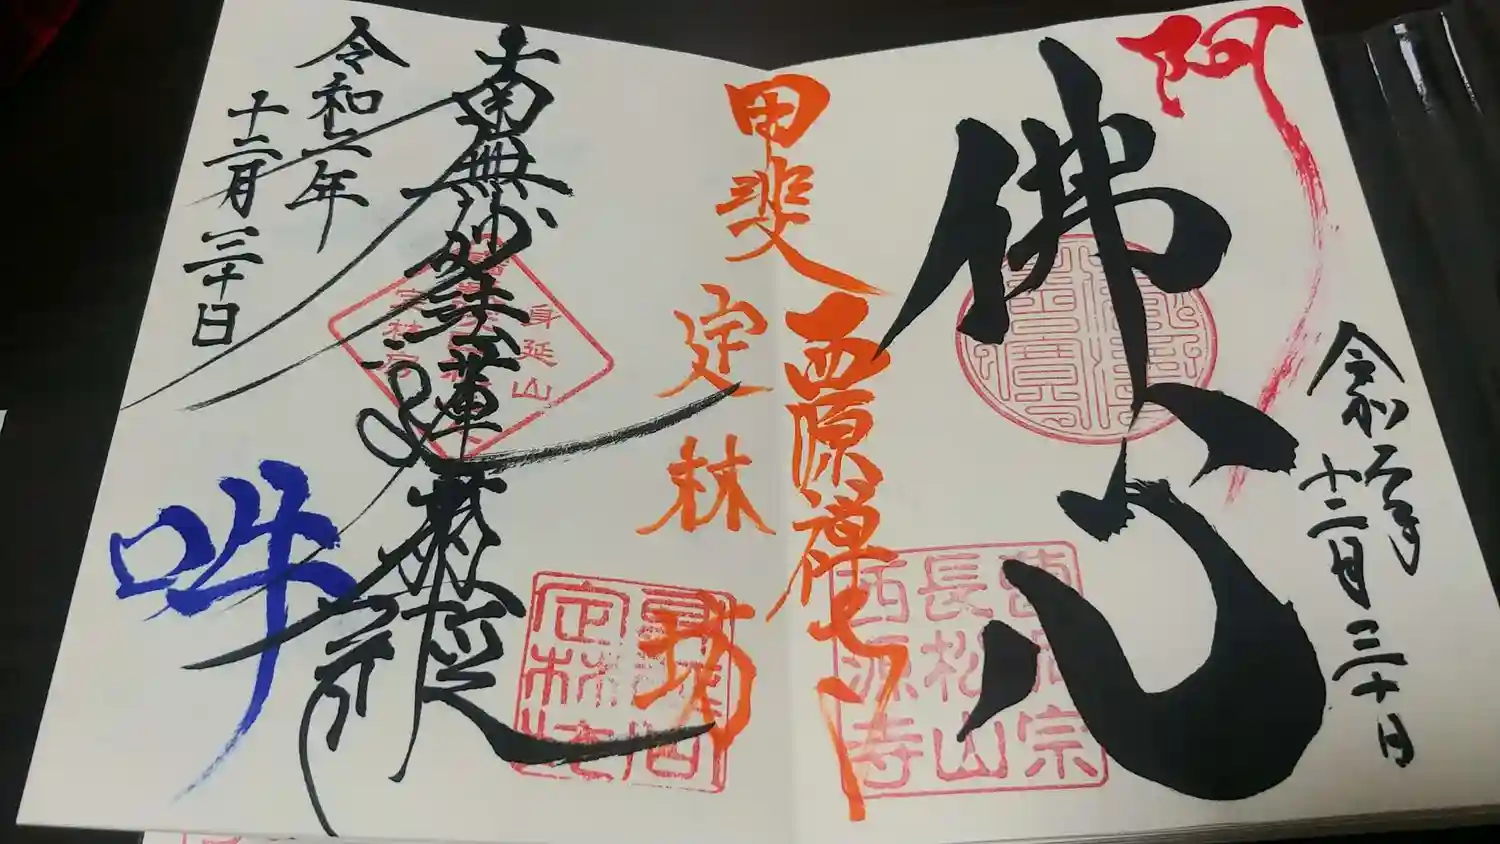 阿
佛心
令和二年
十二月三十日
甲斐
西原禅寺
曹洞宗
長松山
西源寺
定林坊
南無妙法蓮華経
身延山
定林坊
吽
令和二年
十二月三十日